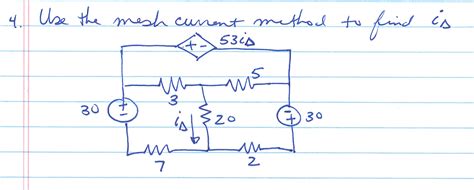 4. Use the mesh current method to find iΔ
+ - 53iΔ
5
3
30 + - iΔ 20 - + 30
7 2